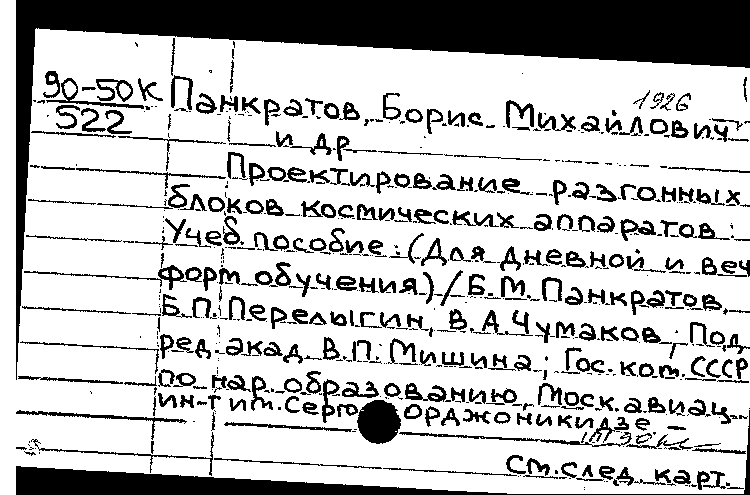 1926
90-50К Панкратов, Борис Михайлович
522
и др.
Проектирование разгонных
блоков космических аппаратов :
Учеб. пособие : (Для дневной и веч
форм обучения) / Б.М. Панкратов,
Б.П. Перелыгин, В.А. Чумаков ; Под
ред. акад. В.П. Мишина ; Гос. ком. СССР
по нар. образованию, Моск. авиац.
ин-т им. Серго Орджоникидзе –
См. след. карт.